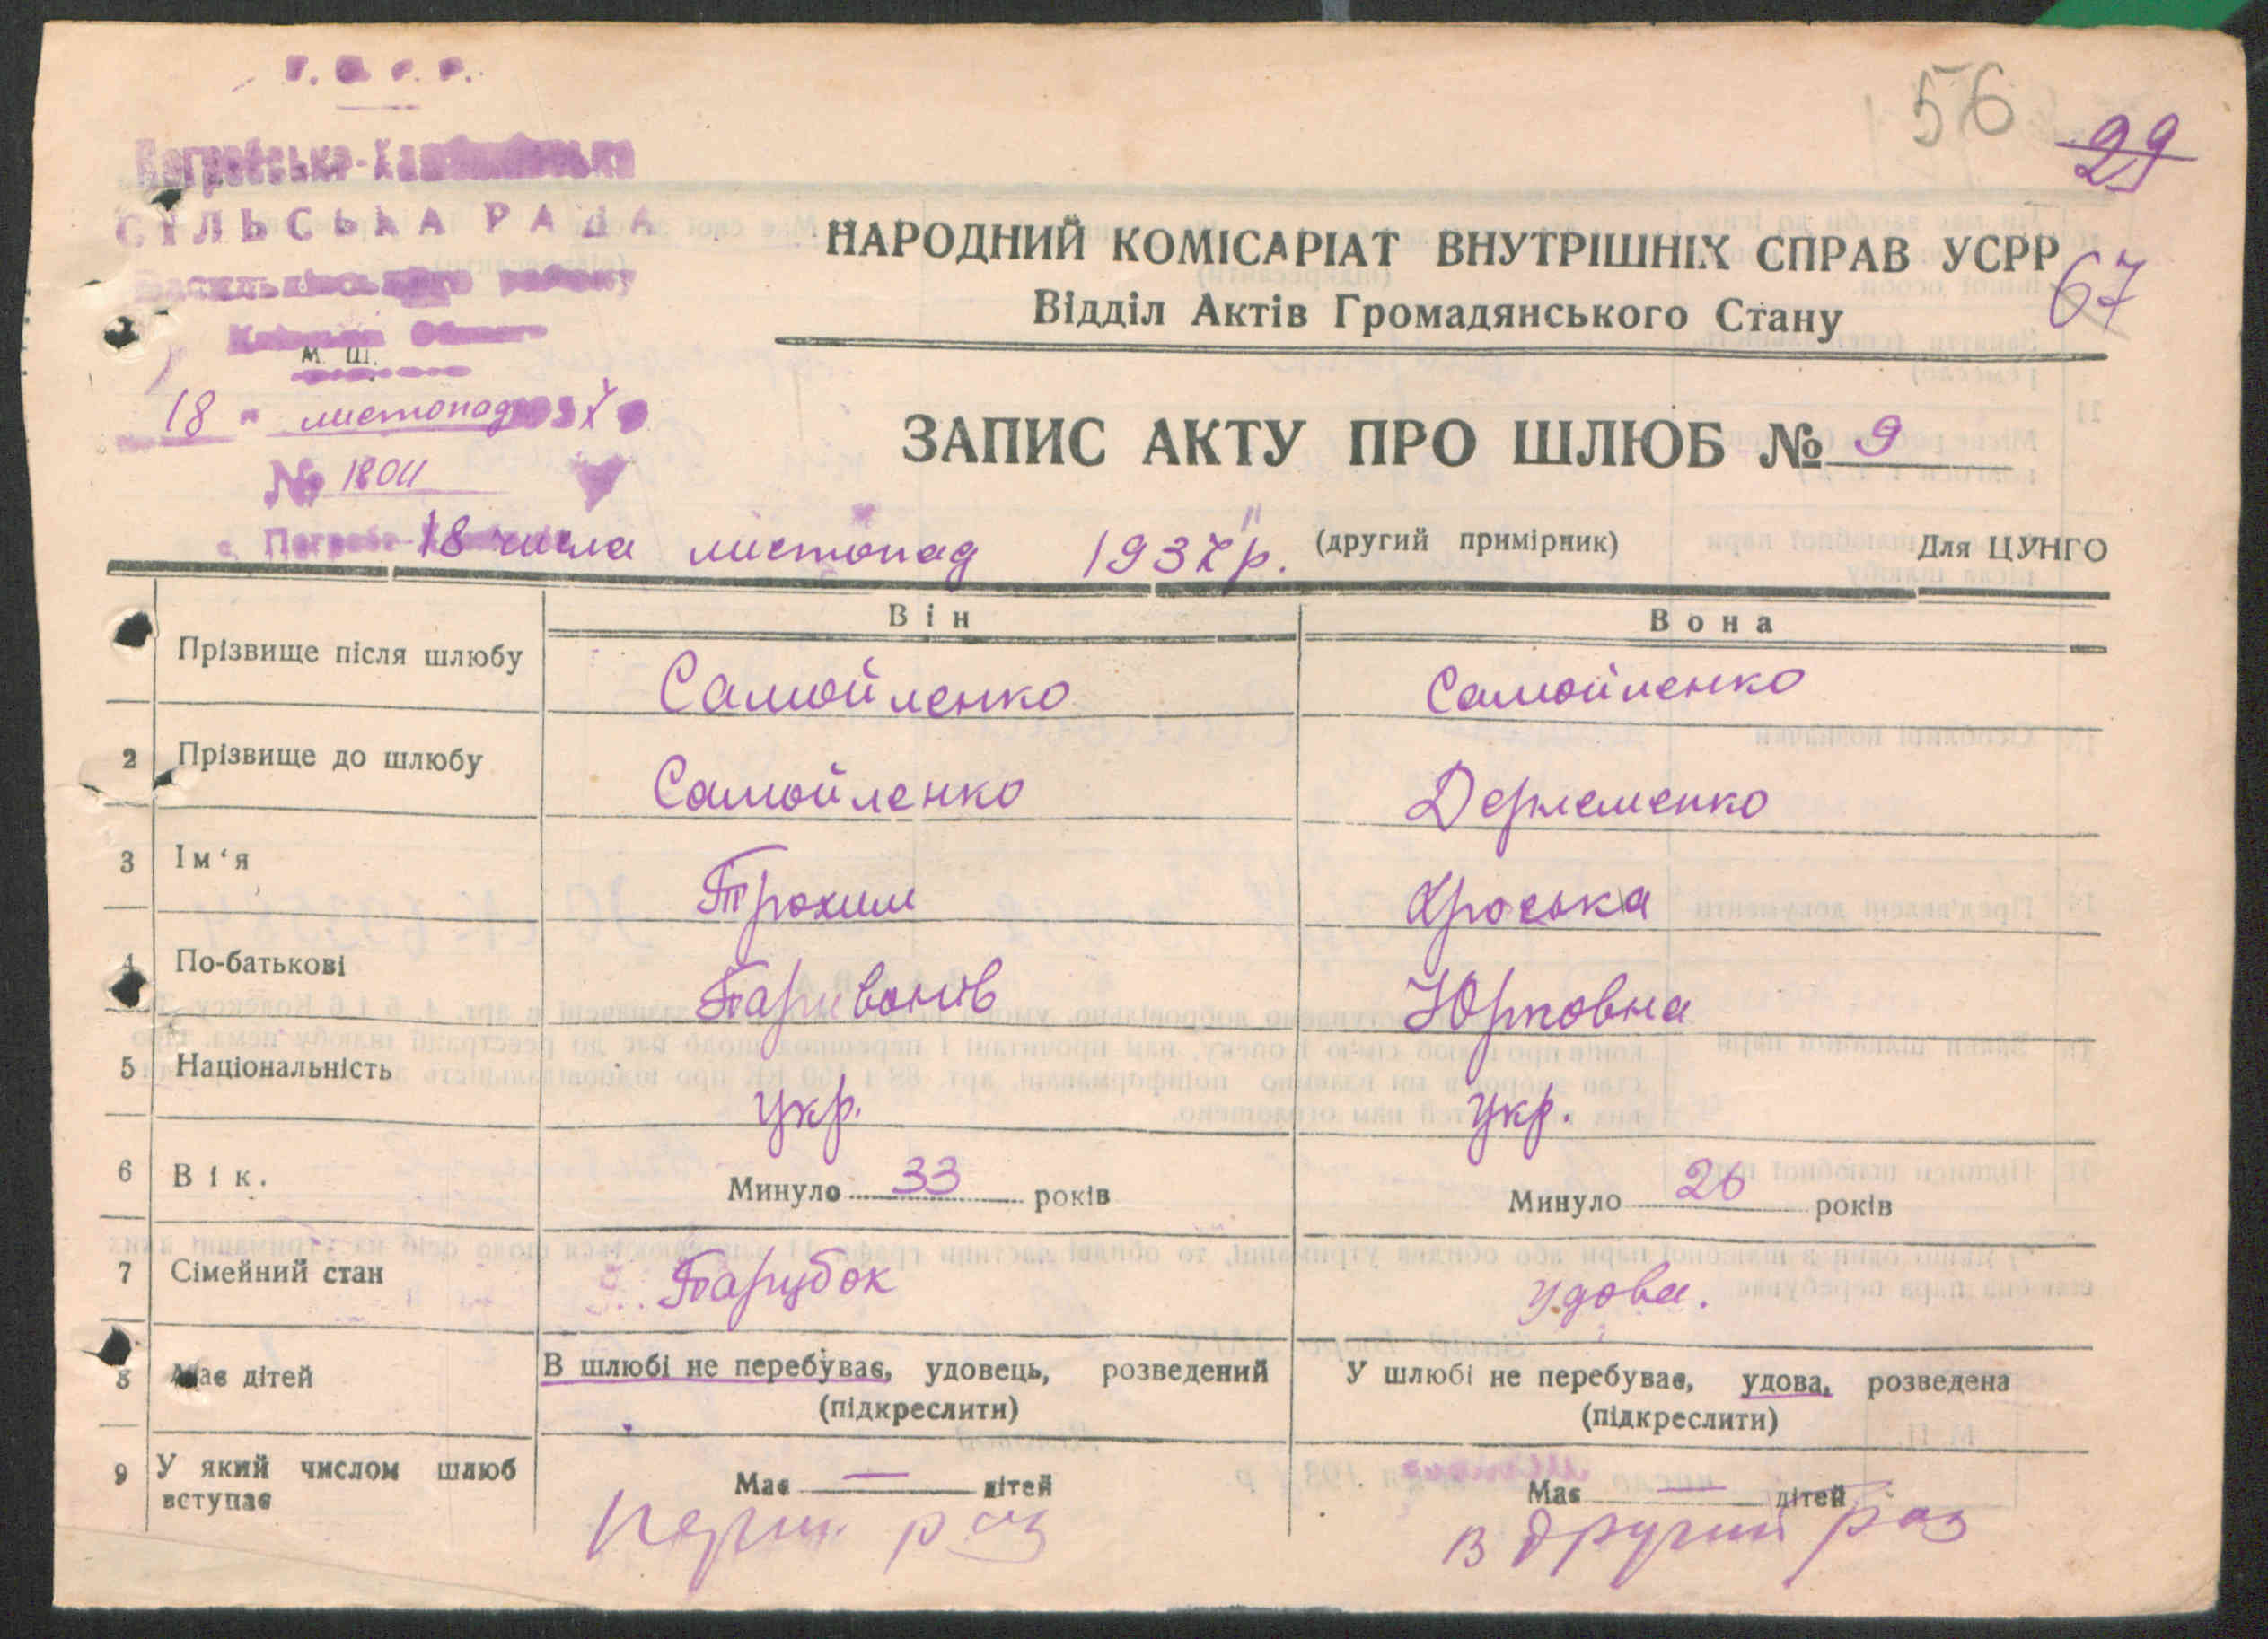 56
29
СІЛЬСЬКА РАДА
НАРОДНИЙ КОМІСАРІАТ ВНУТРІШНІХ СПРАВ УСРР
67
Відділ Актів Громадянського Стану
М. Ш.
18 " листопад 1937
№ 1804
ЗАПИС АКТУ ПРО ШЛЮБ № 9
18 числа листопад 1937 р. (другий примірник) Для ЦУНГО
Він Вона
Прізвище після шлюбу Самойленко Самойленко
2 Прізвище до шлюбу Самойленко
3 Ім'я Трохим
4 По-батькові Паривонів Юрковна
5 Національність укр. укр.
6 Вік. Минуло 33 років Минуло 26 років
7 Сімейний стан Парубок удова.
8 Має дітей В шлюбі не перебуває, удовець, розведений У шлюбі не перебуває, удова, розведена
(підкреслити) (підкреслити)
9 У який числом шлюб вступає Має — дітей Має — дітей
перш. раз в другий раз